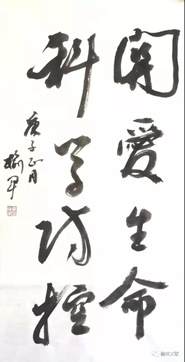 關愛生命
科学防控
庚子正月